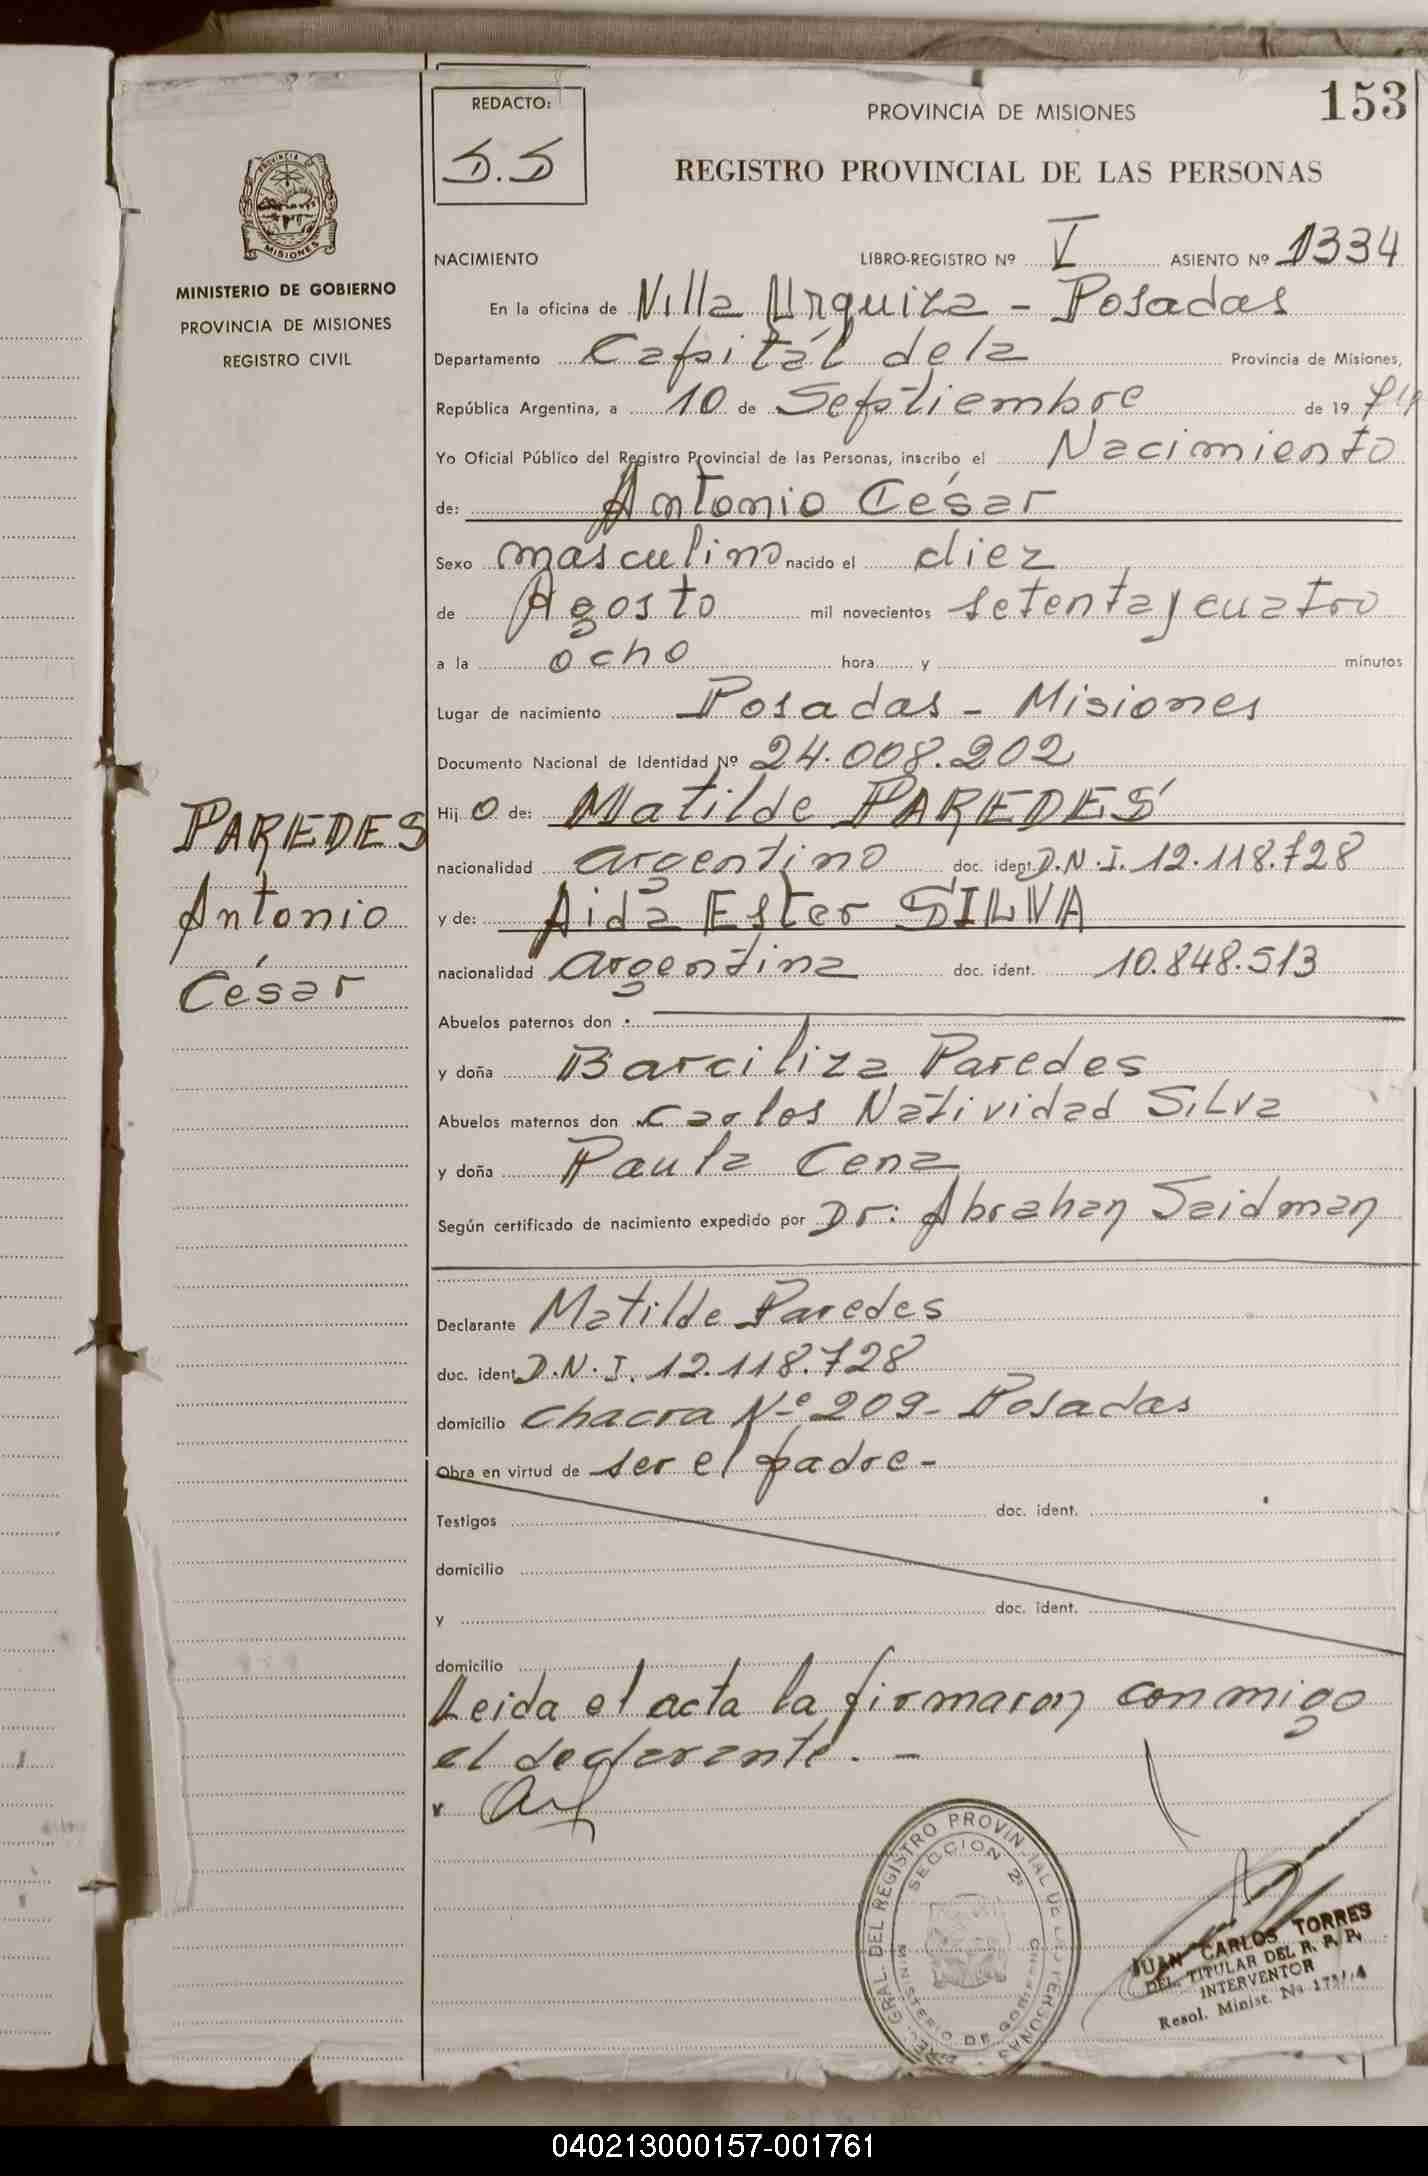 153
REDACTO:
PROVINCIA DE MISIONES
REGISTRO PROVINCIAL DE LAS PERSONAS
PROVINCIA DE
MISIONES
MINISTERIO DE GOBIERNO
PROVINCIA DE MISIONES
REGISTRO CIVIL
NACIMIENTO LIBRO-REGISTRO Nº V ASIENTO Nº 1334
En la oficina de Villa Urquiza - Posadas
Departamento Capital de la Provincia de Misiones,
República Argentina, a 10 de Septiembre de 19 74
Yo Oficial Público del Registro Provincial de las Personas, inscribo el Nacimiento
de: Antonio César
Sexo masculino nacido el diez
de Agosto mil novecientos setenta y cuatro
a la ocho hora y minutos
Lugar de nacimiento Posadas - Misiones
Documento Nacional de Identidad Nº 24.008.202
Hij o de: Matilde PAREDES
nacionalidad argentino doc. ident. D.N.I. 12.118.728
y de: Aida Ester SILVA
nacionalidad argentina doc. ident. 10.848.513
Abuelos paternos don
y doña Barciliza Paredes
Abuelos maternos don Carlos Natividad Silva
y doña Paula Cena
Según certificado de nacimiento expedido por Dr: Abrahan Saidman
Declarante Matilde Paredes
doc. ident D.N.I. 12.118.728
domicilio chacra Nº 209- Posadas
Obra en virtud de ser el padre -
Testigos doc. ident.
domicilio
y doc. ident.
domicilio
Leida el acta la firmaron conmigo
el declarante. -
PAREDES
Antonio
César
GRAL. DEL REGISTRO PROVIN
SECCION 2ª
MINISTERIO DE
JUAN CARLOS TORRES
DEL. TITULAR DEL R. P. P.
INTERVENTOR
Resol. Minist. Nº
040213000157-001761